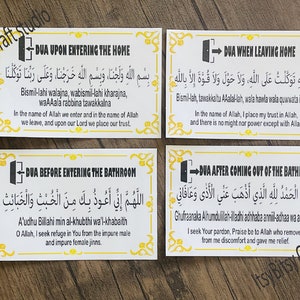 DUA UPON ENTERING THE HOME
بِسْمِ اللَّهِ وَلَجْنَا، وَبِسْمِ اللَّهِ خَرَجْنَا، وَعَلَى رَبِّنَا تَوَكَّلْنَا
Bismil-lahi walajna, wabismil-lahi kharajna,
waAAala rabbina tawakkalna
In the name of Allah we enter and in the name of Allah
we leave, and upon our Lord we place our trust.
DUA WHEN LEAVING HOME
تَوَكَّلْتُ عَلَى اللَّهِ، وَلَا حَوْلَ وَلَا قُوَّةَ إِلَّا بِاللَّهِ
Bismil-lah, tawakkaltu AAalal-lah, wala hawla wala quwwata
In the name of Allah, I place my trust in Allah,
and there is no might nor power except with Allah
DUA BEFORE ENTERING THE BATHROOM
اللَّهُمَّ إِنِّي أَعُوذُ بِكَ مِنَ الْخُبْثِ وَالْخَبَائِثِ
A'udhu Billahi min al-khubthi wa'l-khabaith
O Allah, I seek refuge in You from the impure male
and impure female jinns.
DUA AFTER COMING OUT OF THE BATHROOM
الْحَمْدُ لِلَّهِ الَّذِي أَذْهَبَ عَنِّي الْأَذَى وَعَافَانِي
Ghufraanaka Alhumdulillah-illadhi adhhaba annil-adhaa wa
I seek Your pardon, Praise be to Allah who removed
from me discomfort and gave me relief.